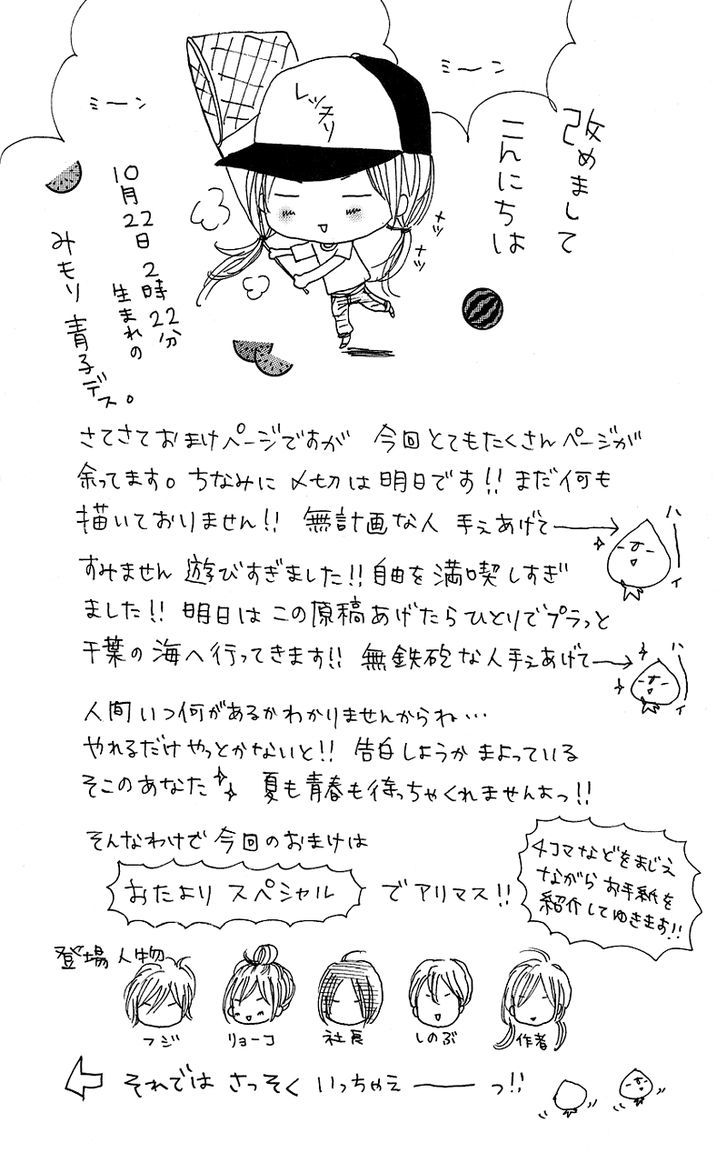 改めまして
こんにちは
ミーン
ミーン
レッスリ
ナッ
ナッ
10月22日2時22分
生まれの
みもり青子デス。
さてさておまけページですが 今回とてもたくさんページが
余ってます。ちなみに〆切は明日です!! まだ何も
描いておりません!! 無計画な人 手ぇあげて
ハーイ
すみません 遊びすぎました!! 自由を満喫しすぎ
ました!! 明日はこの原稿あげたらひとりでプラっと
千葉の海へ行ってきます!! 無鉄砲な人手ぇあげて
ハーイ
人間いつ何があるかわかりませんからね…
やれるだけやっとかないと!! 告白しようかまよっている
そこのあなた 夏も青春も待っちゃくれませんよっ!!
そんなわけで今回のおまけは
おたよりスペシャル でアリマス!!
4コマなどをまじえ
ながらお手紙を
紹介してゆきます!!
登場人物
フジ
リョーコ
社長
しのぶ
作者
それでは さっそく いっちゃえーっ!!